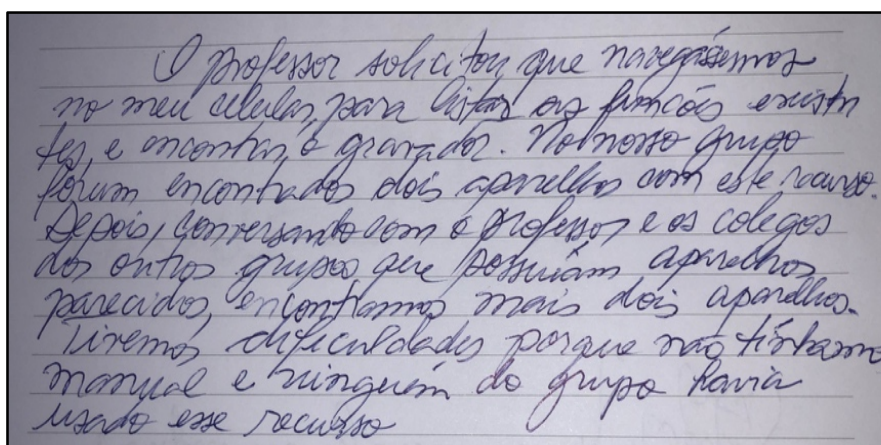 O professor solicitou que navegássemos
no meu celular, para listar as funções existen
tes, e encontrar o gravador. No nosso grupo
foram encontrados dois aparelhos com este recurso.
Depois, conversando com o professor e os colegas
dos outros grupos que possuíam aparelhos
parecidos, encontramos mais dois aparelhos.
Tivemos dificuldades porque não tínhamos
manual e ninguém do grupo havia
usado esse recurso